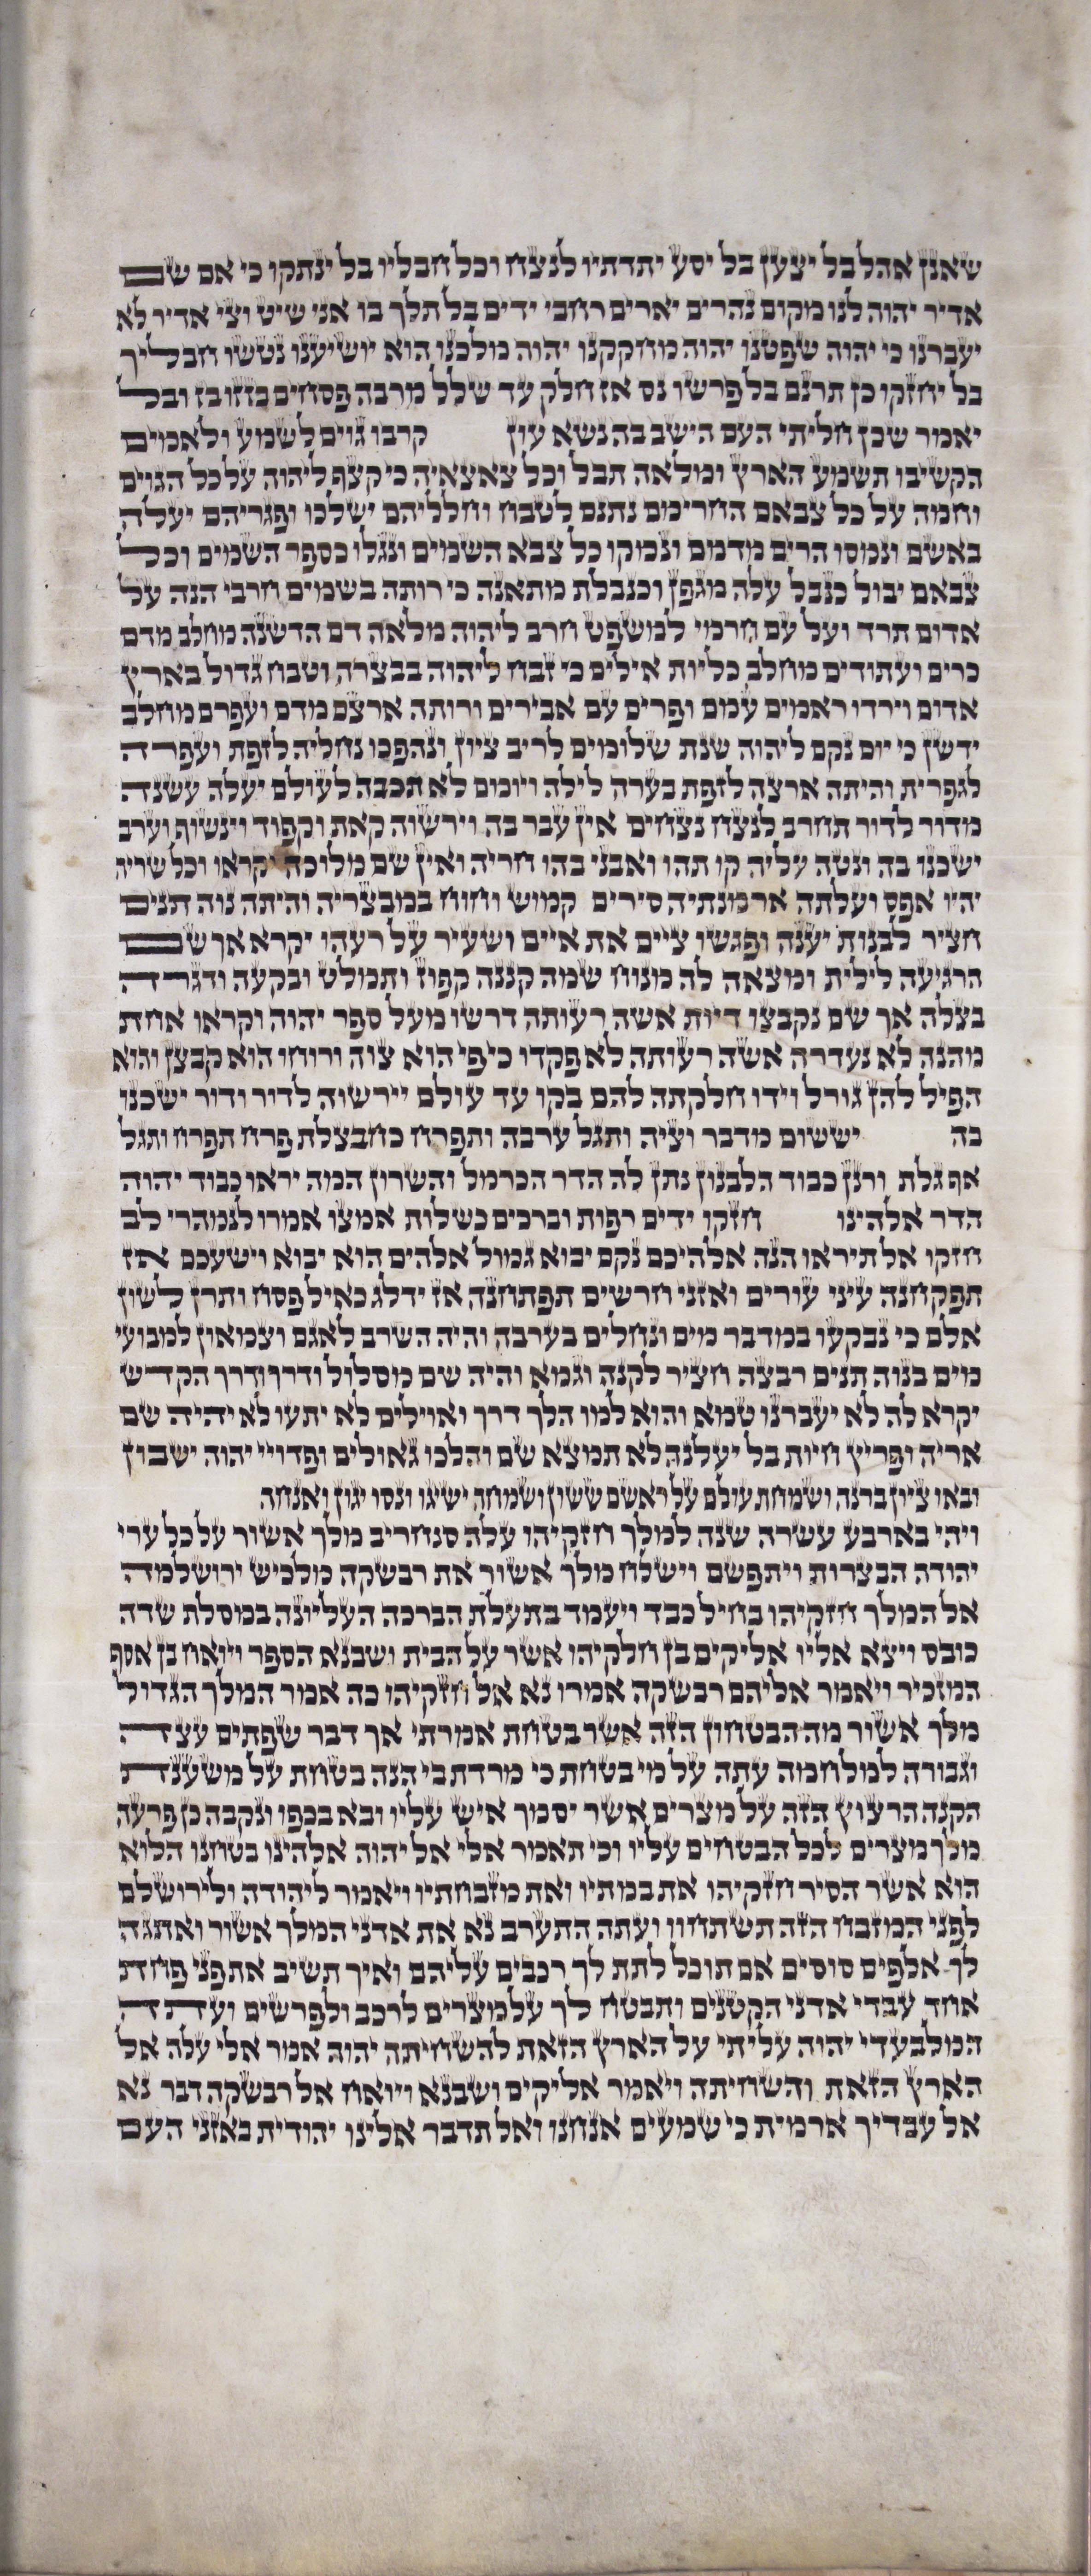 שאנן אהל בל יצען בל יסע יתדתיו לנצח וכל חבליו בל ינתקו כי אם שם
אדיר יהוה לנו מקום נהרים יארים רחבי ידים בל תלך בו אני שיט וצי אדיר לא
יעברנו כי יהוה שפטנו יהוה מחקקנו יהוה מלכנו הוא יושיענו נטשו חבליך
בל יחזקו כן תרנם בל פרשו נס אז חלק עד שלל מרבה פסחים בזזו בז ובל
יאמר שכן חליתי העם הישב בה נשא עון קרבו גוים לשמע ולאמים
הקשיבו תשמע הארץ ומלאה תבל וכל צאצאיה כי קצף ליהוה על כל הגוים
וחמה על כל צבאם החרימם נתנם לטבח וחלליהם ישלכו ופגריהם יעלה
באשם ונמסו הרים מדמם ונמקו כל צבא השמים ונגלו כספר השמים וכל
צבאם יבול כנבל עלה מגפן וכנבלת מתאנה כי רותה בשמים חרבי הנה על
אדום תרד ועל עם חרמי למשפט חרב ליהוה מלאה דם הדשנה מחלב מדם
כרים ועתודים מחלב כליות אילים כי זבח ליהוה בבצרה וטבח גדול בארץ
אדום וירדו ראמים עמם ופרים עם אבירים ורותה ארצם מדם ועפרם מחלב
ידשן כי יום נקם ליהוה שנת שלומים לריב ציון ונהפכו נחליה לזפת ועפרה
לגפרית והיתה ארצה לזפת בערה לילה ויומם לא תכבה לעולם יעלה עשנה
מדור לדור תחרב לנצח נצחים אין עבר בה וירשוה קאת וקפוד וינשוף וערב
ישכנו בה ונטה עליה קו תהו ואבני בהו חריה ואין שם מלוכה יקראו וכל שריה
יהיו אפס ועלתה ארמנתיה סירים קמוש וחוח במבצריה והיתה נוה תנים
חציר לבנות יענה ופגשו ציים את איים ושעיר על רעהו יקרא אך שם
הרגיעה לילית ומצאה לה מנוח שמה קננה קפוז ותמלט ובקעה ודגרה
בצלה אך שם נקבצו דיות אשה רעותה דרשו מעל ספר יהוה וקראו אחת
מהנה לא נעדרה אשה רעותה לא פקדו כי פי הוא צוה ורוחו הוא קבצן והוא
הפיל להן גורל וידו חלקתה להם בקו עד עולם יירשוה לדור ודור ישכנו
בה יששום מדבר וציה ותגל ערבה ותפרח כחבצלת פרח תפרח ותגל
אף גלת ורנן כבוד הלבנון נתן לה הדר הכרמל והשרון המה יראו כבוד יהוה
הדר אלהינו חזקו ידים רפות וברכים כשלות אמצו אמרו לנמהרי לב
חזקו אל תיראו הנה אלהיכם נקם יבוא גמול אלהים הוא יבוא וישעכם אז
תפקחנה עיני עורים ואזני חרשים תפתחנה אז ידלג כאיל פסח ותרן לשון
אלם כי נבקעו במדבר מים ונחלים בערבה והיה השרב לאגם וצמאון למבועי
מים בנוה תנים רבצה חציר לקנה וגמא והיה שם מסלול ודרך ודרך הקדש
יקרא לה לא יעברנו טמא והוא למו הלך דרך ואוילים לא יתעו לא יהיה שם
אריה ופריץ חיות בל יעלנה לא תמצא שם והלכו גאולים ופדויי יהוה ישבון
ובאו ציון ברנה ושמחת עולם על ראשם ששון ושמחה ישיגו ונסו יגון ואנחה
ויהי בארבע עשרה שנה למלך חזקיהו עלה סנחריב מלך אשור על כל ערי
יהודה הבצרות ויתפשם וישלח מלך אשור את רבשקה מלכיש ירושלמה
אל המלך חזקיהו בחיל כבד ויעמד בתעלת הברכה העליונה במסלת שדה
כובס ויצא אליו אליקים בן חלקיהו אשר על הבית ושבנא הספר ויואח בן אסף
המזכיר ויאמר אליהם רבשקה אמרו נא אל חזקיהו כה אמר המלך הגדול
מלך אשור מה הבטחון הזה אשר בטחת אמרתי אך דבר שפתים עצה
וגבורה למלחמה עתה על מי בטחת כי מרדת בי הנה בטחת על משענת
הקנה הרצוץ הזה על מצרים אשר יסמך איש עליו ובא בכפו ונקבה כן פרעה
מלך מצרים לכל הבטחים עליו וכי תאמר אלי אל יהוה אלהינו בטחנו הלוא
הוא אשר הסיר חזקיהו את במתיו ואת מזבחתיו ויאמר ליהודה ולירושלם
לפני המזבח הזה תשתחוו ועתה התערב נא את אדני המלך אשור ואתנה
לך אלפים סוסים אם תוכל לתת לך רכבים עליהם ואיך תשיב את פני פחת
אחד עבדי אדני הקטנים ותבטח לך על מצרים לרכב ולפרשים ועתה
המבלעדי יהוה עליתי על הארץ הזאת להשחיתה יהוה אמר אלי עלה אל
הארץ הזאת והשחיתה ויאמר אליקים ושבנא ויואח אל רבשקה דבר נא
אל עבדיך ארמית כי שמעים אנחנו ואל תדבר אלינו יהודית באזני העם